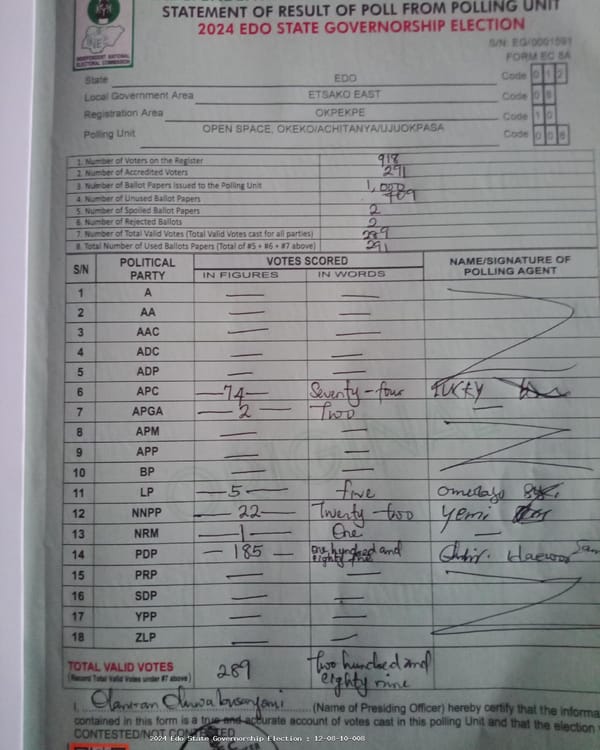 STATEMENT OF RESULT OF POLL FROM POLLING UNIT
2024 EDO STATE GOVERNORSHIP ELECTION
S/N: EG/0001591
FORM EC 8A
INEC
INDEPENDENT NATIONAL ELECTORAL COMMISSION
State EDO Code 0 1 2
Local Government Area ETSAKO EAST Code 0 8
Registration Area OKPEKPE Code 1 0
Polling Unit OPEN SPACE, OKEKO/ACHITANYA/UJUOKPASA Code 0 0 8
1. Number of Voters on the Register 918
2. Number of Accredited Voters 291
3. Number of Ballot Papers Issued to the Polling Unit 1,000
4. Number of Unused Ballot Papers 709
5. Number of Spoiled Ballot Papers 2
6. Number of Rejected Ballots 2
7. Number of Total Valid Votes (Total Valid Votes cast for all parties) 289
8. Total Number of Used Ballots Papers (Total of #5 + #6 + #7 above) 291
S/N POLITICAL PARTY VOTES SCORED NAME/SIGNATURE OF POLLING AGENT
IN FIGURES IN WORDS
1 A — —
2 AA — —
3 AAC — —
4 ADC — —
5 ADP — —
6 APC —74— Seventy-four Lucky
7 APGA —2— Two —
8 APM — —
9 APP — —
10 BP — —
11 LP —5— five
12 NNPP —22— Twenty-two Yemi
13 NRM —1— One —
14 PDP —185— One hundred and eighty five
15 PRP — —
16 SDP — —
17 YPP — —
18 ZLP — —
TOTAL VALID VOTES 289 Two hundred and eighty nine
(Record Total Valid Votes under #7 above)
I, (Name of Presiding Officer) hereby certify that the informa
contained in this form is a true and accurate account of votes cast in this polling Unit and that the election
CONTESTED/NOT CONTESTED
2024 Edo State Governorship Election : 12-08-10-008